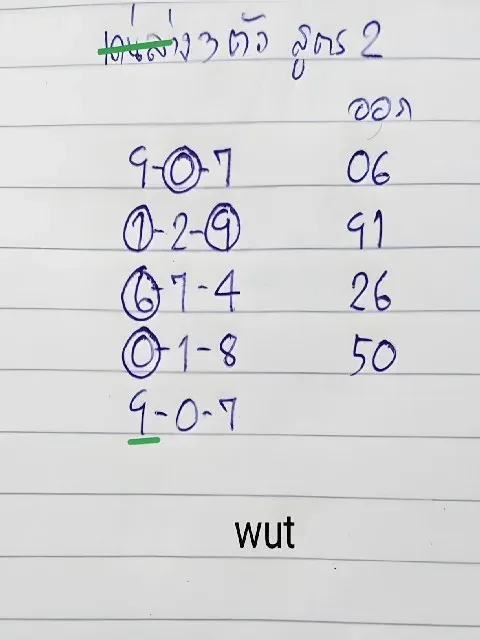 เด่นล่าง 3 ตัว สูตร 2
ออก
9-0-7 06
1-2-9 91
6-7-4 26
0-1-8 50
9-0-7
wut